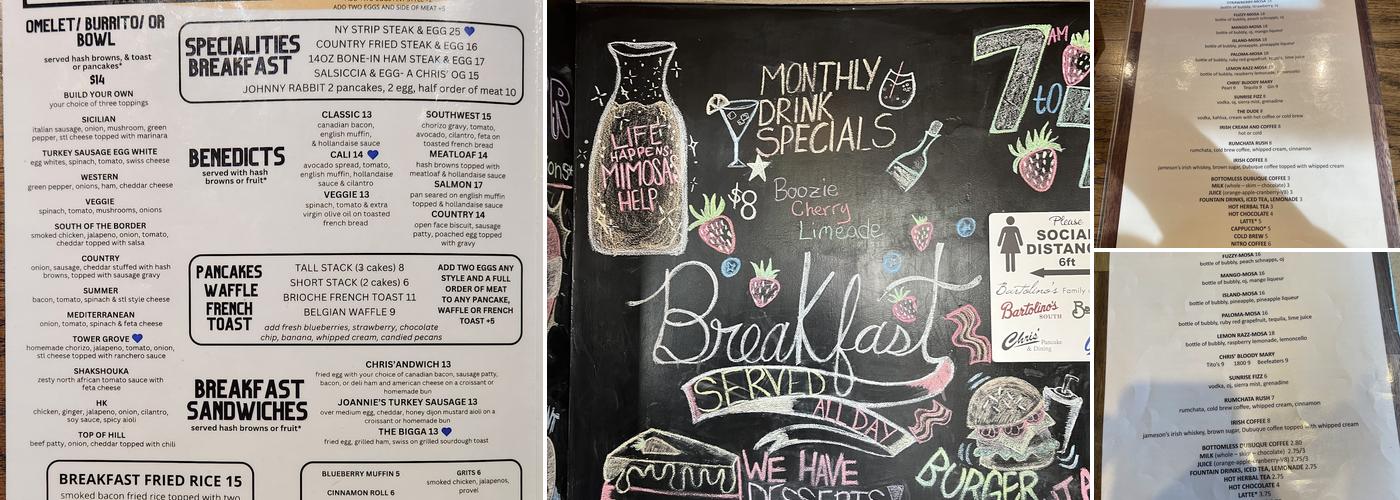 ADD TWO EGGS AND SIDE OF MEAT +5
OMELET/ BURRITO/ OR
BOWL
served hash browns, & toast
or pancakes*
$14
BUILD YOUR OWN
your choice of three toppings
SICILIAN
italian sausage, onion, mushroom, green
pepper, stl cheese topped with marinara
TURKEY SAUSAGE EGG WHITE
egg whites, spinach, tomato, swiss cheese
WESTERN
green pepper, onions, ham, cheddar cheese
VEGGIE
spinach, tomato, mushrooms, onions
SOUTH OF THE BORDER
smoked chicken, jalapeno, onion, tomato,
cheddar topped with salsa
COUNTRY
onion, sausage, cheddar stuffed with hash
browns, topped with sausage gravy
SUMMER
bacon, tomato, spinach & stl style cheese
MEDITERRANEAN
onion, tomato, spinach & feta cheese
TOWER GROVE 💙
homemade chorizo, jalapeno, tomato, onion,
stl cheese topped with ranchero sauce
SHAKSHOUKA
zesty north african tomato sauce with
feta cheese
HK
chicken, ginger, jalapeno, onion, cilantro,
soy sauce, spicy aioli
TOP OF HILL
beef patty, onion, cheddar topped with chili
SPECIALITIES
BREAKFAST
NY STRIP STEAK & EGG 25 💙
COUNTRY FRIED STEAK & EGG 16
14OZ BONE-IN HAM STEAK & EGG 17
SALSICCIA & EGG- A CHRIS' OG 15
JOHNNY RABBIT 2 pancakes, 2 egg, half order of meat 10
BENEDICTS
served with hash
browns or fruit*
CLASSIC 13
canadian bacon,
english muffin,
& hollandaise sauce
CALI 14 💙
avocado spread, tomato,
english muffin, hollandaise
sauce & cilantro
VEGGIE 13
spinach, tomato & extra
virgin olive oil on toasted
french bread
SOUTHWEST 15
chorizo gravy, tomato,
avocado, cilantro, feta on
toasted french bread
MEATLOAF 14
hash browns topped with
meatloaf & hollandaise sauce
SALMON 17
pan seared on english muffin
topped & hollandaise sauce
COUNTRY 14
open face biscuit, sausage
patty, poached egg topped
with gravy
PANCAKES
WAFFLE
FRENCH
TOAST
TALL STACK (3 cakes) 8
SHORT STACK (2 cakes) 6
BRIOCHE FRENCH TOAST 11
BELGIAN WAFFLE 9
add fresh blueberries, strawberry, chocolate
chip, banana, whipped cream, candied pecans
ADD TWO EGGS ANY
STYLE AND A FULL
ORDER OF MEAT
TO ANY PANCAKE,
WAFFLE OR FRENCH
TOAST +5
BREAKFAST
SANDWICHES
served hash browns or fruit*
CHRIS'ANDWICH 13
fried egg with your choice of canadian bacon, sausage patty,
bacon, or deli ham and american cheese on a croissant or
homemade bun
JOANNIE'S TURKEY SAUSAGE 13
over medium egg, cheddar, honey dijon mustard aioli on a
croissant or homemade bun
THE BIGGA 13 💙
fried egg, grilled ham, swiss on grilled sourdough toast
BREAKFAST FRIED RICE 15
smoked bacon fried rice topped with two
BLUEBERRY MUFFIN 5
CINNAMON ROLL 6
GRITS 6
smoked chicken, jalapenos,
provel
LIFE
HAPPENS,
MIMOSAS
HELP
MONTHLY
DRINK
SPECIALS
$8
Boozie
Cherry
Limeade
7 AM
to
Breakfast
SERVED
ALL DAY
WE HAVE
DESSERTS
BURGER
Please
SOCIAL
DISTANC
6ft
Bartolino's Family
Bartolino's
SOUTH
Chris' Pancake
& Dining
STRAWBERRY-MOSA 18
bottle of bubbly, strawberry, oj
FUZZY-MOSA 18
bottle of bubbly, peach schnapps, oj
MANGO-MOSA 18
bottle of bubbly, oj, mango liqueur
ISLAND-MOSA 18
bottle of bubbly, pineapple, pineapple liqueur
PALOMA-MOSA 18
bottle of bubbly, ruby red grapefruit, tequila, lime juice
LEMON RAZZ-MOSA
bottle of bubbly, raspberry lemonade, limoncello
CHRIS' BLOODY MARY
Pearl 9 Tequila 9 Gin 9
SUNRISE FIZZ 8
vodka, oj, sierra mist, grenadine
THE DUDE 8
vodka, kahlua, cream with hot coffee or cold brew
IRISH CREAM AND COFFEE 8
hot or cold
RUMCHATA RUSH 8
rumchata, cold brew coffee, whipped cream, cinnamon
IRISH COFFEE 8
jameson's irish whiskey, brown sugar, Dubuque coffee topped with whipped cream
BOTTOMLESS DUBUQUE COFFEE 3
MILK (whole – skim – chocolate) 3
JUICE (orange-apple-cranberry-V8) 3
FOUNTAIN DRINKS, ICED TEA, LEMONADE 3
HOT HERBAL TEA 3
HOT CHOCOLATE 4
LATTE* 5
CAPPUCCINO* 5
COLD BREW 5
NITRO COFFEE 6
FUZZY-MOSA 16
bottle of bubbly, peach schnapps, oj
MANGO-MOSA 16
bottle of bubbly, oj, mango liqueur
ISLAND-MOSA 16
bottle of bubbly, pineapple, pineapple liqueur
PALOMA-MOSA 16
bottle of bubbly, ruby red grapefruit, tequila, lime juice
LEMON RAZZ-MOSA 18
bottle of bubbly, raspberry lemonade, lemoncello
CHRIS' BLOODY MARY
Tito's 9 1800 9 Beefeaters 9
SUNRISE FIZZ 6
vodka, oj, sierra mist, grenadine
RUMCHATA RUSH 7
rumchata, cold brew coffee, whipped cream, cinnamon
IRISH COFFEE 8
jameson's irish whiskey, brown sugar, Dubuque coffee topped with whipped cream
BOTTOMLESS DUBUQUE COFFEE 2.80
MILK (whole – skim – chocolate) 2.75/3
JUICE (orange-apple-cranberry-V8) 2.75/3
FOUNTAIN DRINKS, ICED TEA, LEMONADE 2.75
HOT HERBAL TEA 2.75
HOT CHOCOLATE 4
LATTE* 3.75